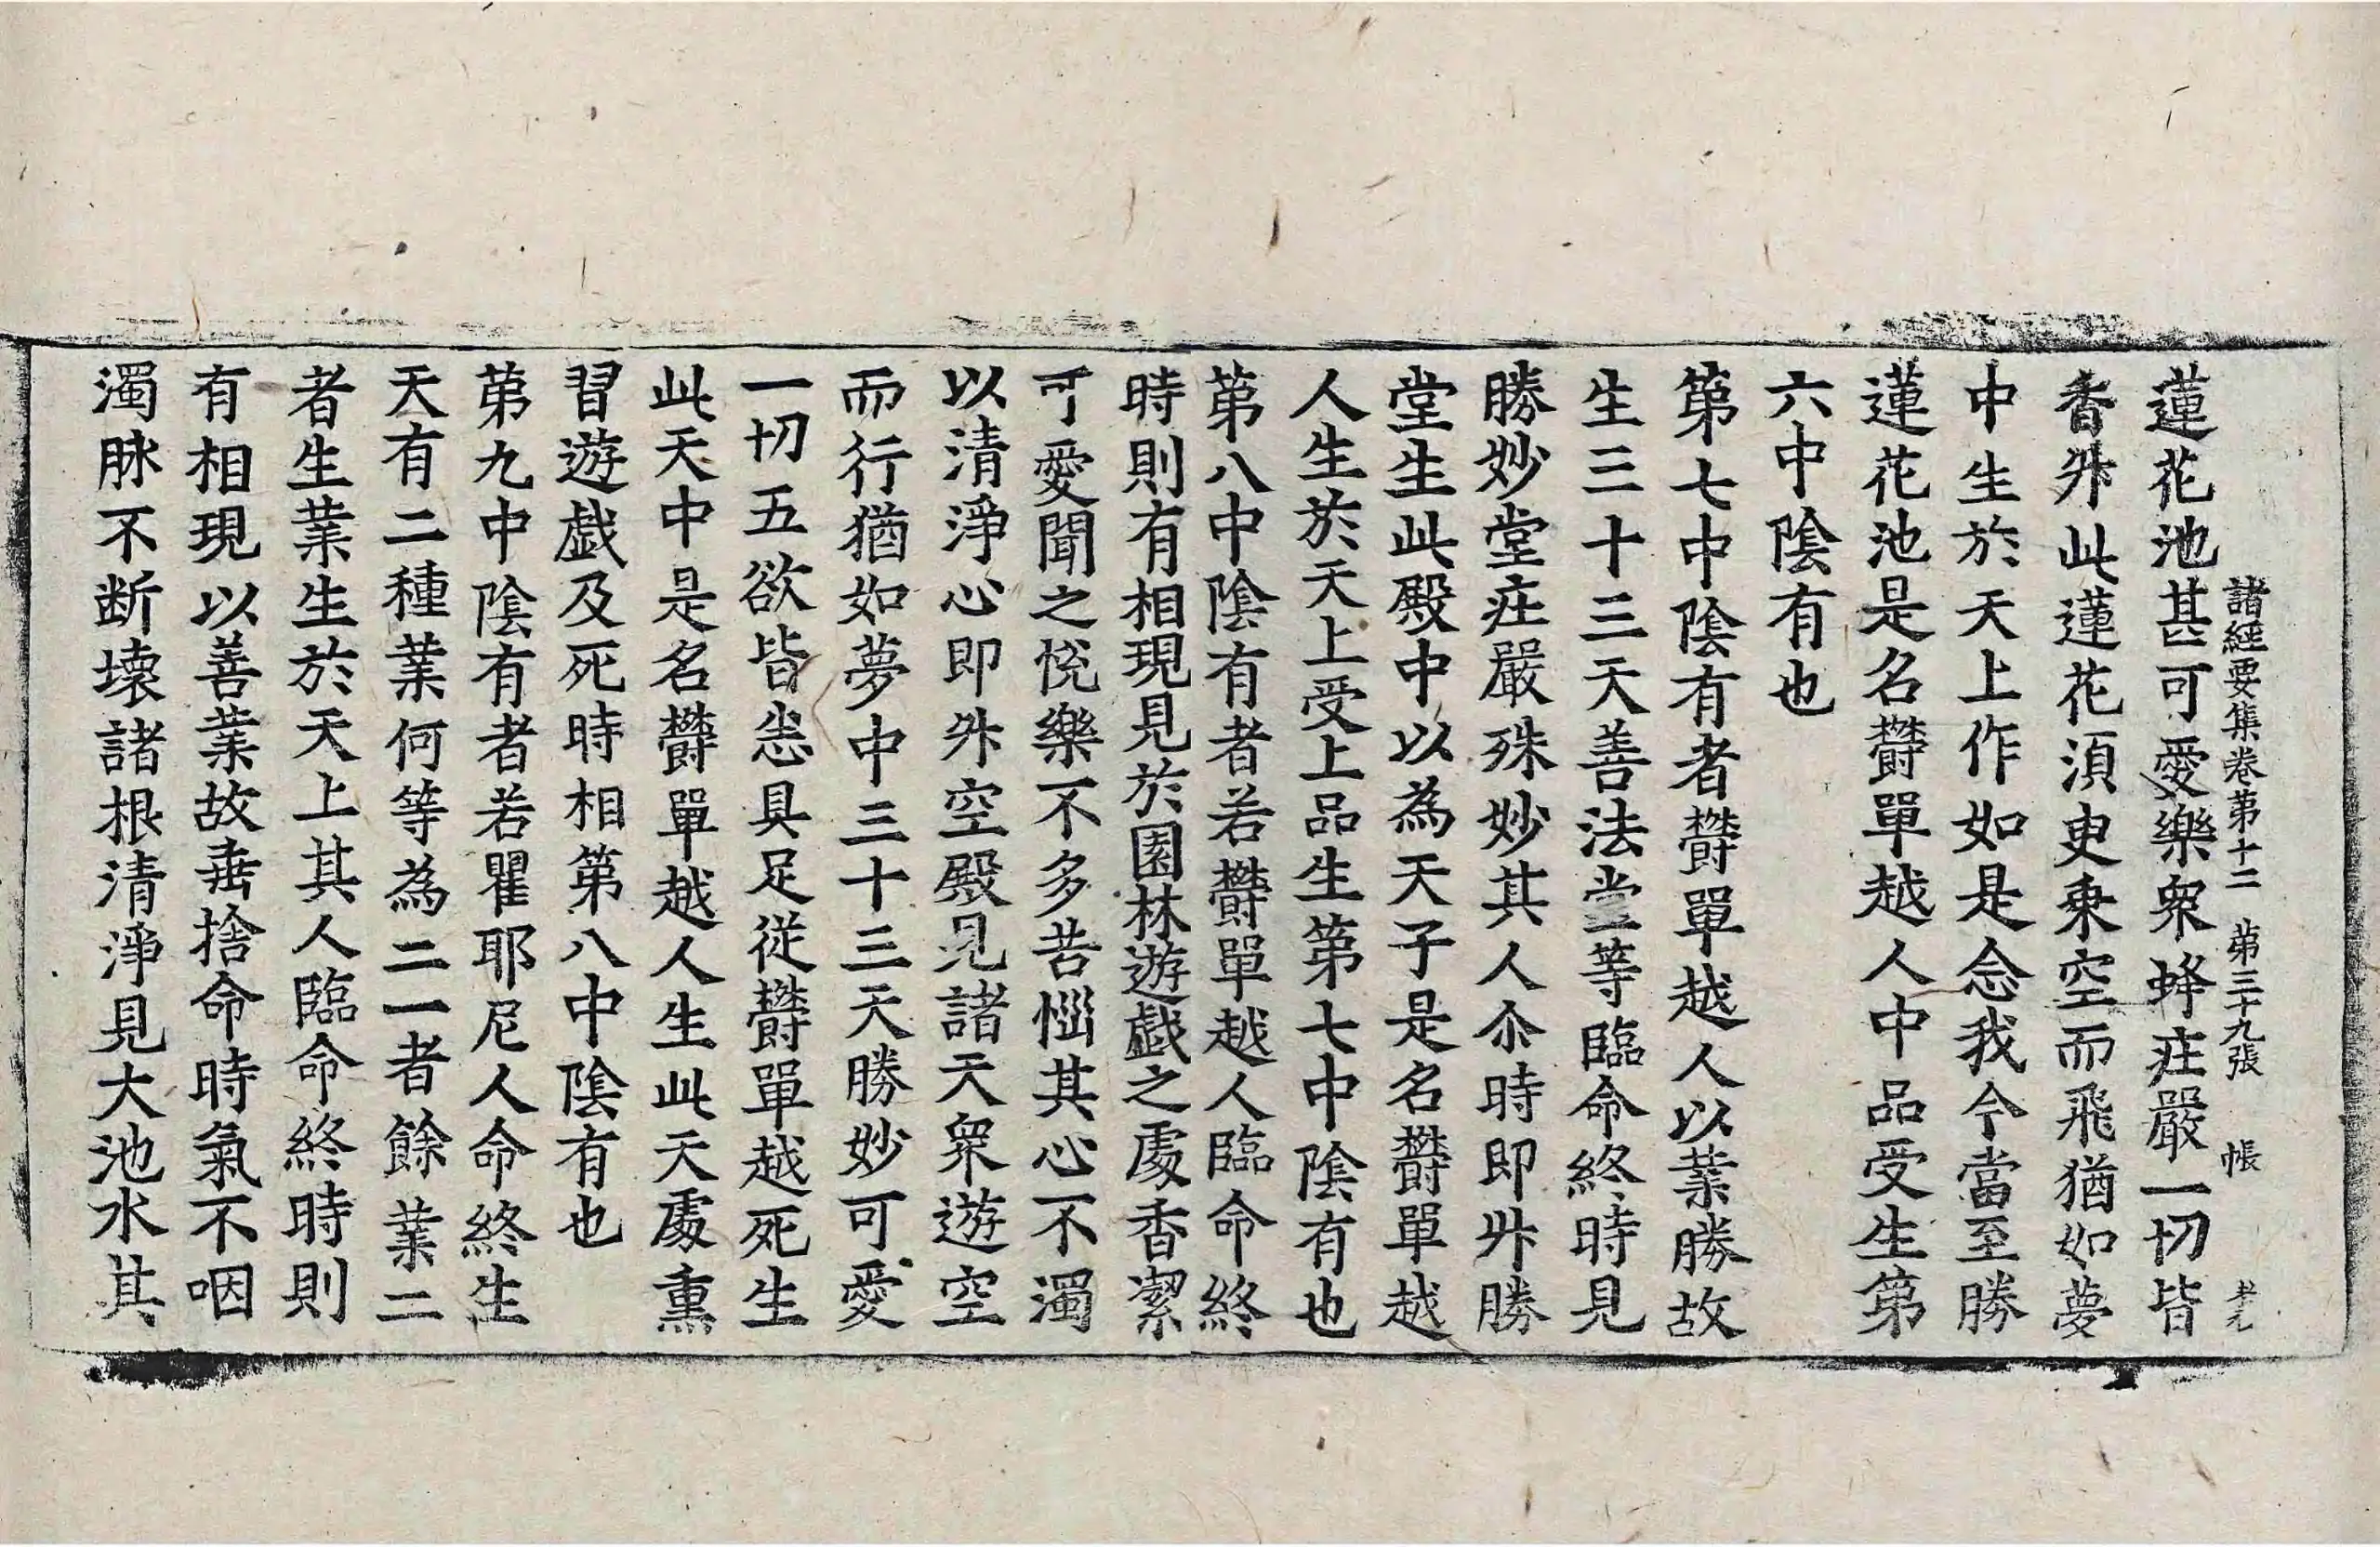 諸經要集卷第十二 第三十九張 帳
蓮花池甚可愛樂衆蜂疰嚴一切皆
香外此蓮花湏臾乗空而飛猶如夢
中生於天上作如是念我今當至勝
蓮花池是名欝單越人中品受生第
六中陰有也
第七中陰有者欝單越人以業勝故
生三十三天善法堂等臨命終時見
勝妙堂疰嚴殊妙其人尒時即外勝
堂生此殿中以為天子是名欝單越
人生於天上受上品生第七中陰有也
第八中陰有者若欝單越人臨命終
時則有相現見於園林遊戯之處香潔
可愛聞之恱樂不多苦惱其心不濁
以清淨心即外空殿見諸天衆遊空
而行猶如夢中三十三天勝妙可愛
一切五欲皆悉具足従欝單越死生
此天中是名欝單越人生此天處熏
習遊戯及死時相第八中陰有也
第九中陰有者若瞿耶尼人命終生
天有二種業何等為二一者餘業二
者生業生於天上其人臨命終時則
有相現以善業故垂捨命時氣不咽
濁脉不断壊諸根清淨見大池水其